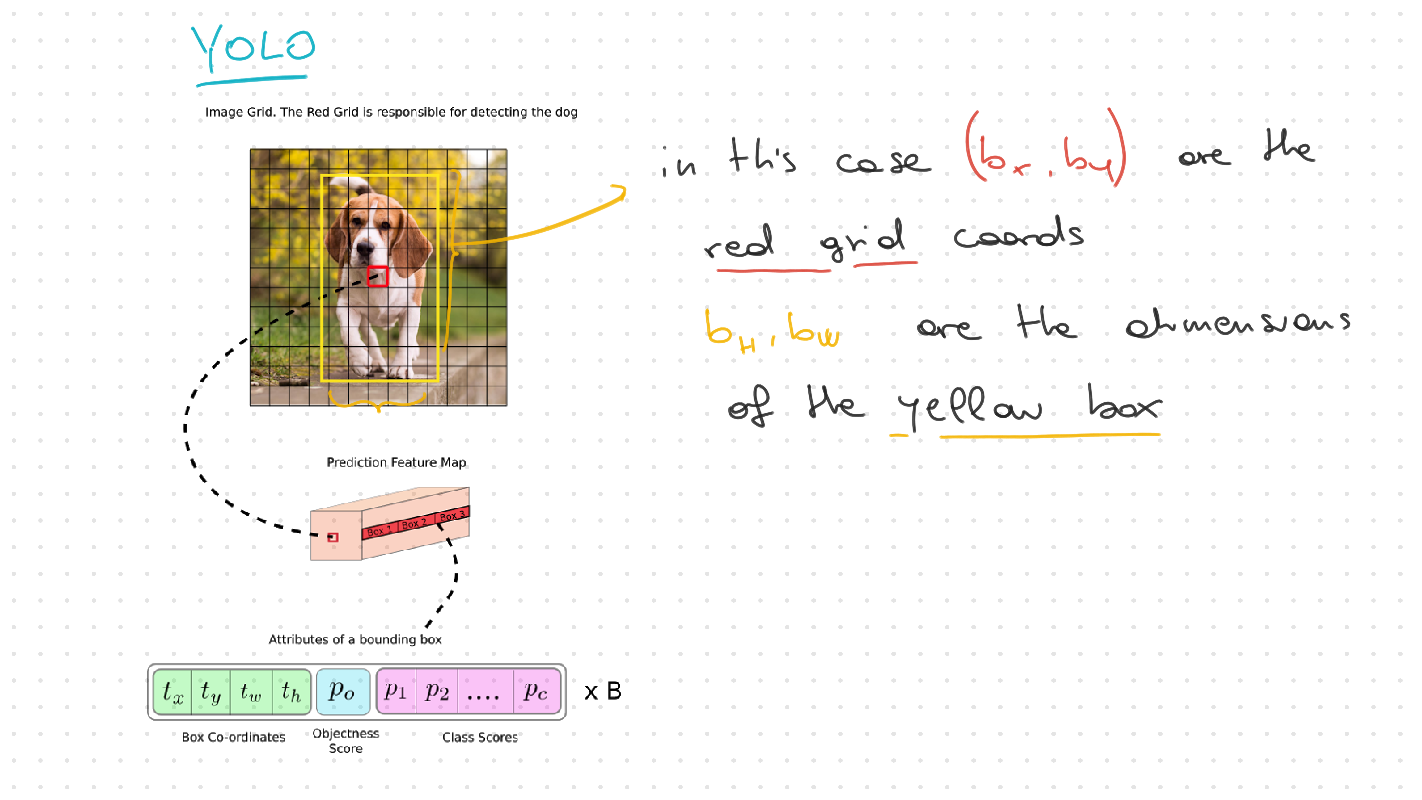 YOLO
Image Grid. The Red Grid is responsible for detecting the dog
in this case (bx, by) are the
red grid coords
bH, bw are the dimensions
of the yellow box
Prediction Feature Map
Box 1 Box 2 Box 3
Attributes of a bounding box
tx ty tw th po p1 p2 .... pc x B
Box Co-ordinates Objectness Score Class Scores